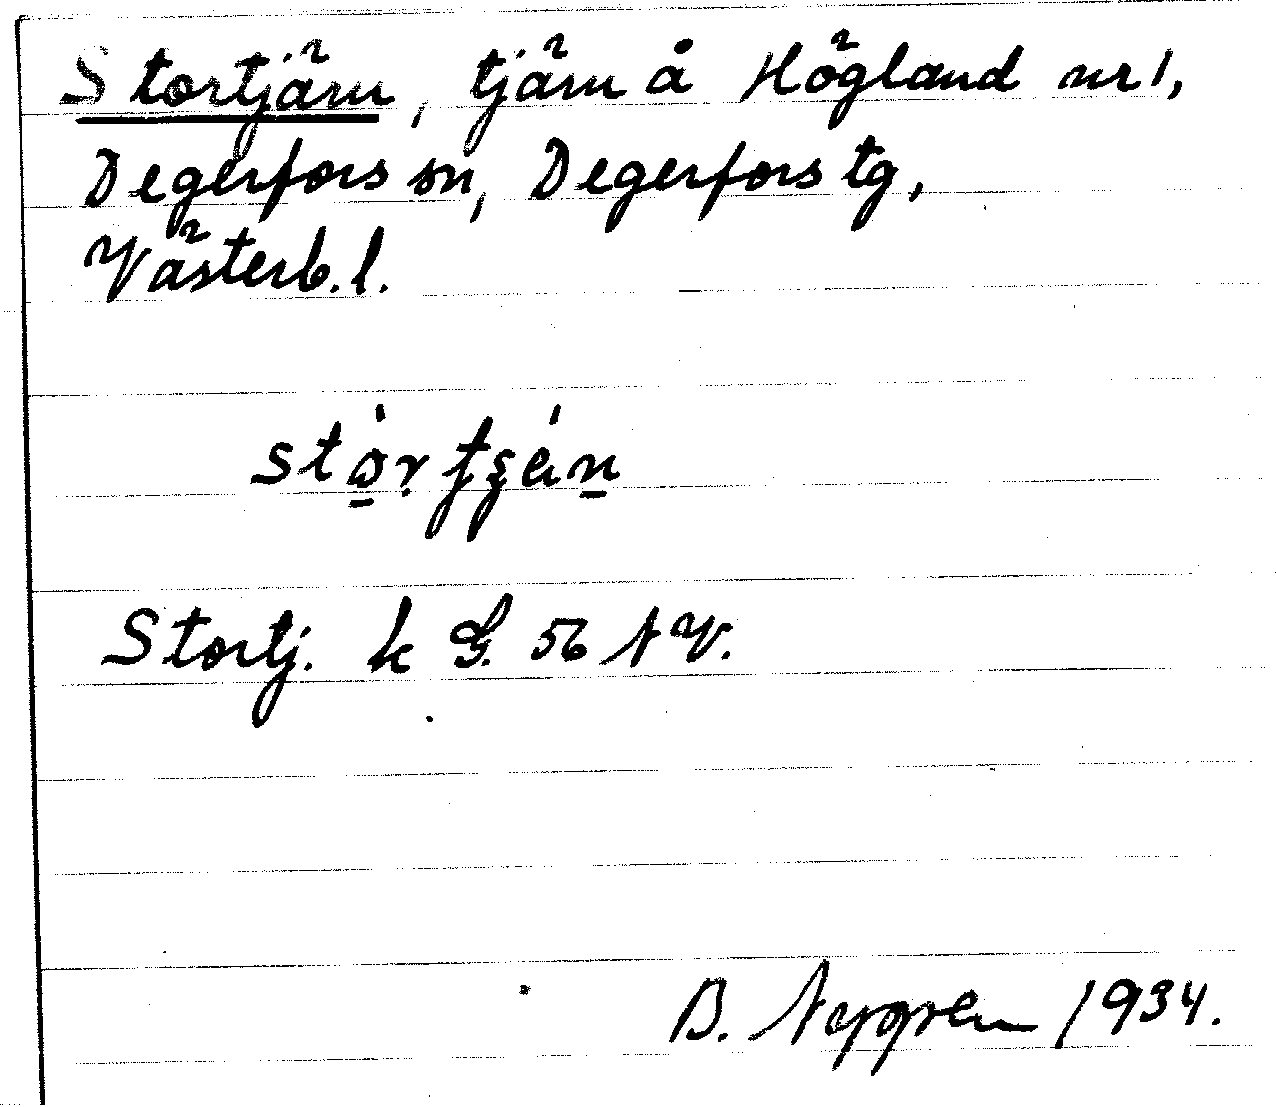 Stortjärn, tjärn å Högland nr 1,
Degerfors sn, Degerfors tg,
Västerb. l.
Stortj. k G. 56 N V.
B. Nygren 1934.